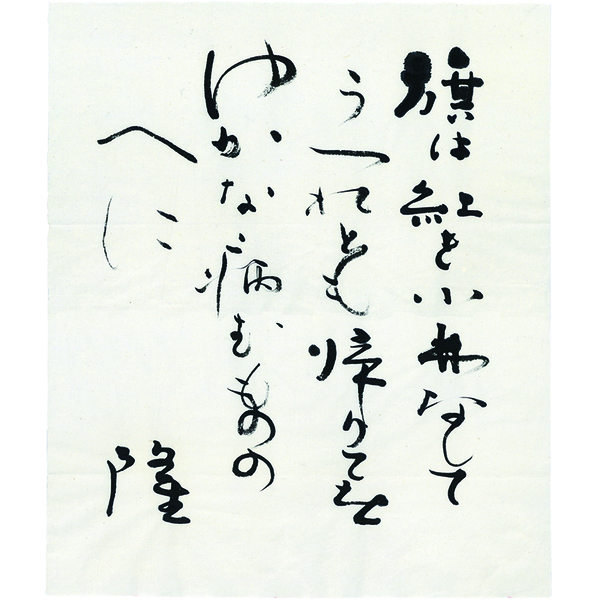 旗は紅き小林なして
うつれども帰りてを
ゆかな病むものの
へに
隆